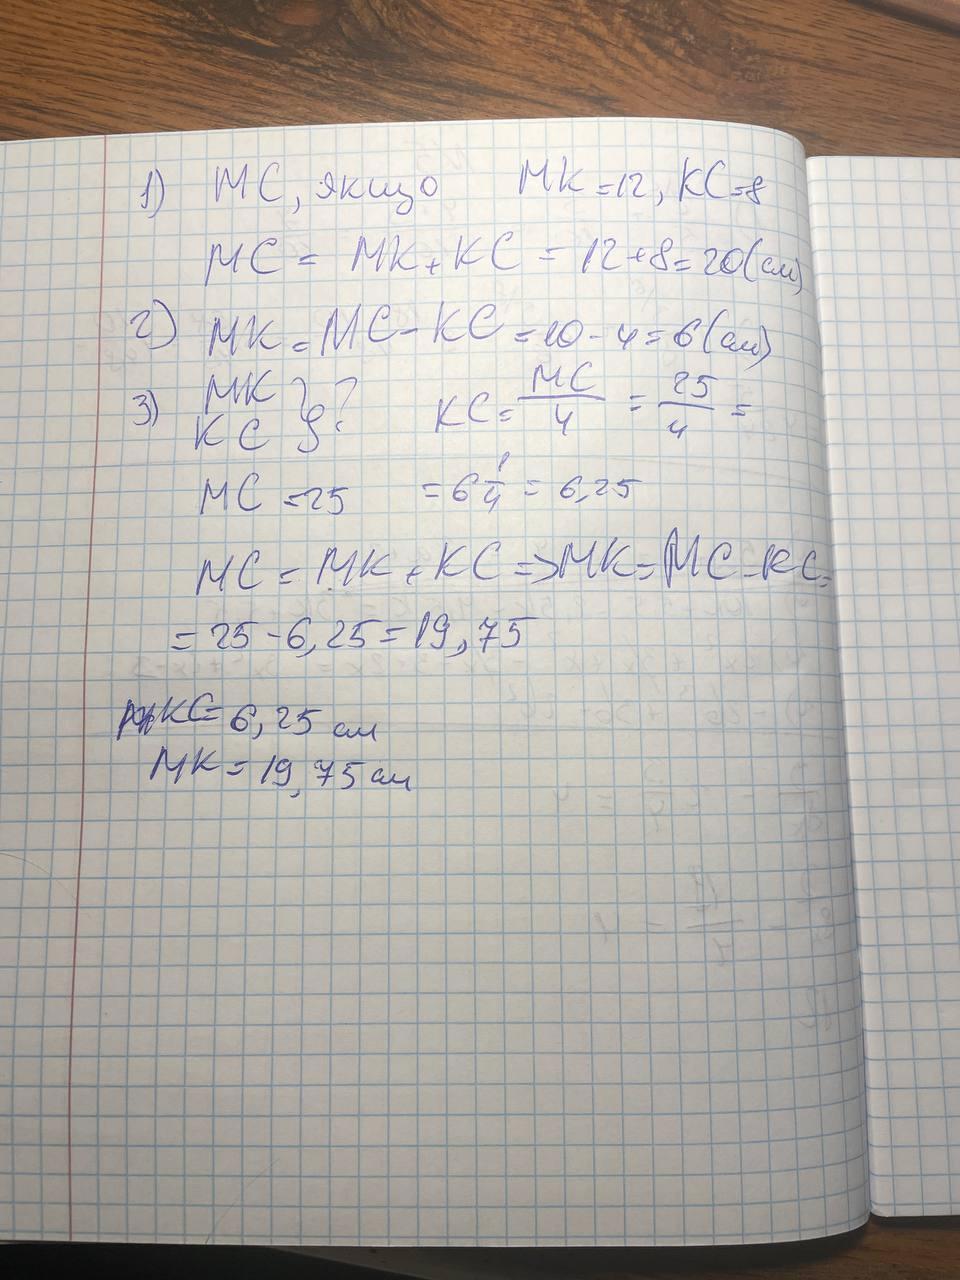 1) MC, якщо MK = 12, KC = 8
MC = MK + KC = 12 + 8 = 20 (см)
2) MK = MC - KC = 10 - 4 = 6 (см)
3) MK } ? KC = MC/4 = 25/4 =
KC
MC = 25 = 6 1/4 = 6,25
MC = MK + KC => MK = MC - KC =
= 25 - 6,25 = 19,75
KC = 6,25 см
MK = 19,75 см